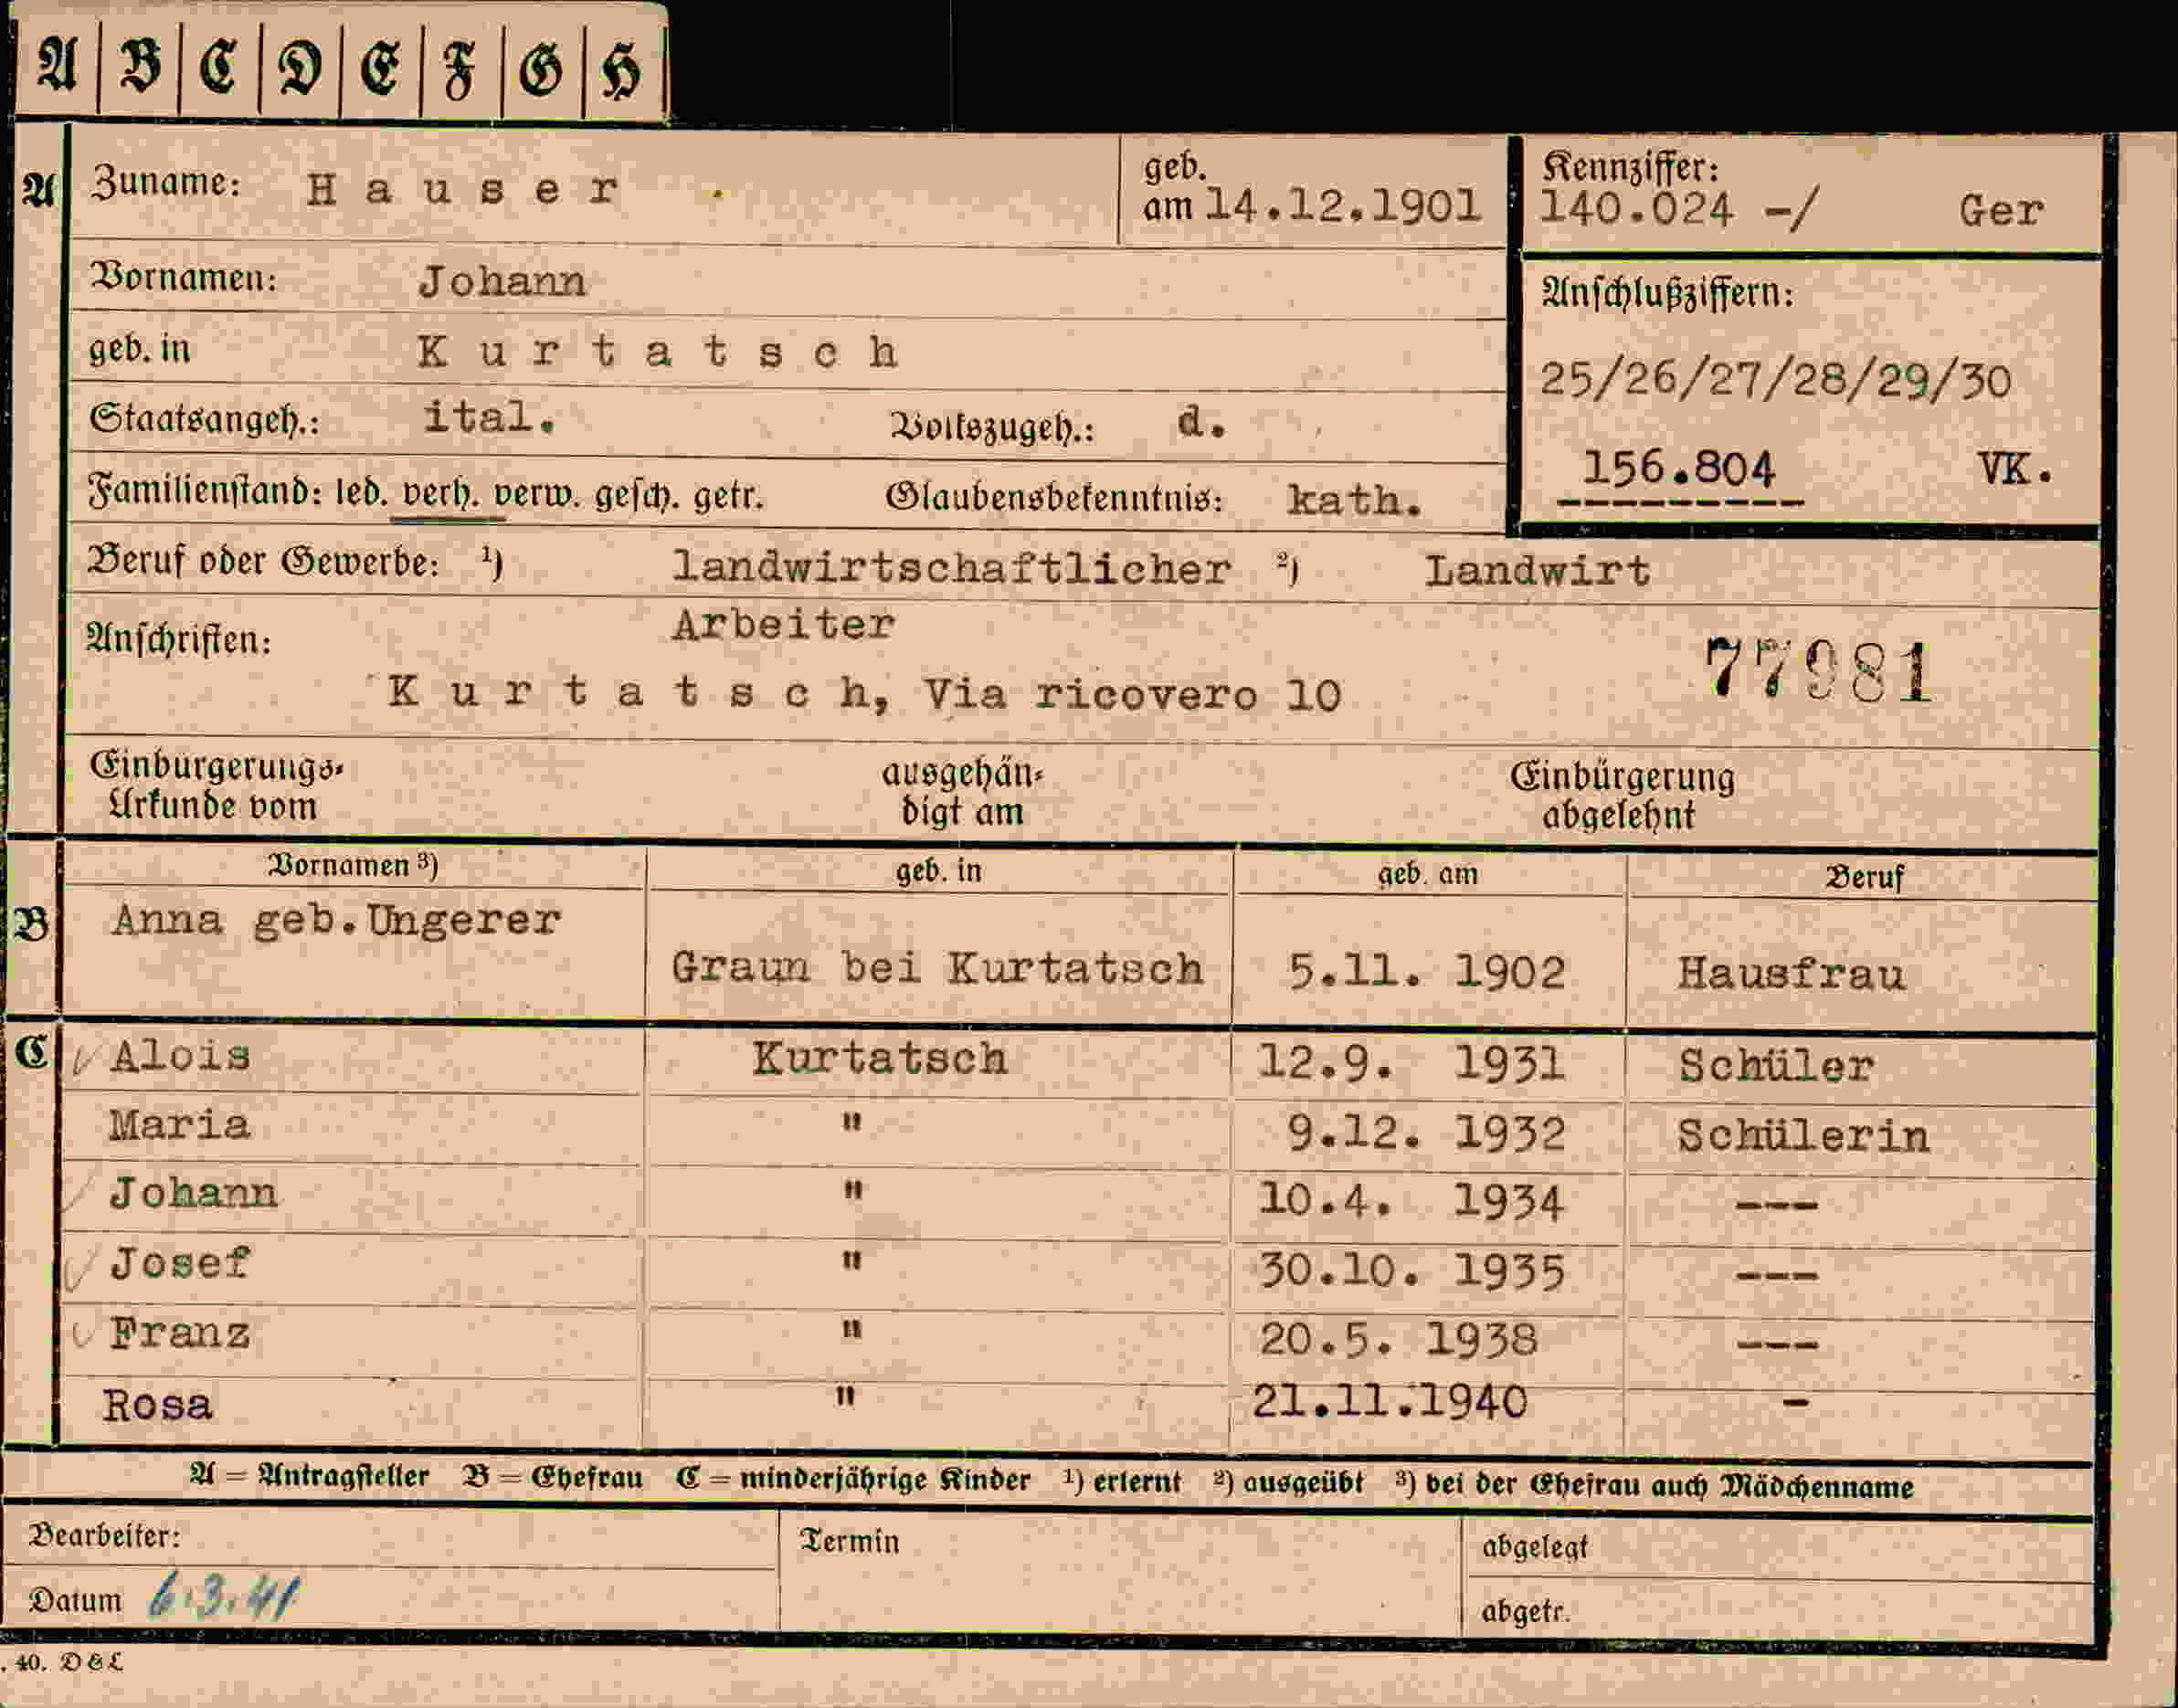 A B C D E F G H
A Zuname: Hauser geb. am 14.12.1901 Kennziffer: 140.024 -/ Ger
Vornamen: Johann
Anschlußziffern:
geb. in Kurtatsch
25/26/27/28/29/30
Staatsangeh.: ital. Volkszugeh.: d.
156.804 VK.
Familienstand: led. verh. verw. gesch. getr. Glaubensbekenntnis: kath.
Beruf oder Gewerbe: ¹) landwirtschaftlicher ²) Landwirt
Arbeiter
Anschriften:
77981
Kurtatsch, Via ricovero 10
Einbürgerungs- ausgehän- Einbürgerung
Urkunde vom digt am abgelehnt
Vornamen ³) geb. in geb. am Beruf
B Anna geb.Ungerer
Graun bei Kurtatsch 5.11. 1902 Hausfrau
C Alois Kurtatsch 12.9. 1931 Schüler
Maria " 9.12. 1932 Schülerin
Johann " 10.4. 1934 ---
Josef " 30.10. 1935 ---
Franz " 20.5. 1938 ---
Rosa " 21.11.1940 -
A = Antragsteller B = Ehefrau C = minderjährige Kinder ¹) erlernt ²) ausgeübt ³) bei der Ehefrau auch Mädchenname
Bearbeiter: Termin abgelegt
Datum 6.3.41 abgetr.
. 40. D & L